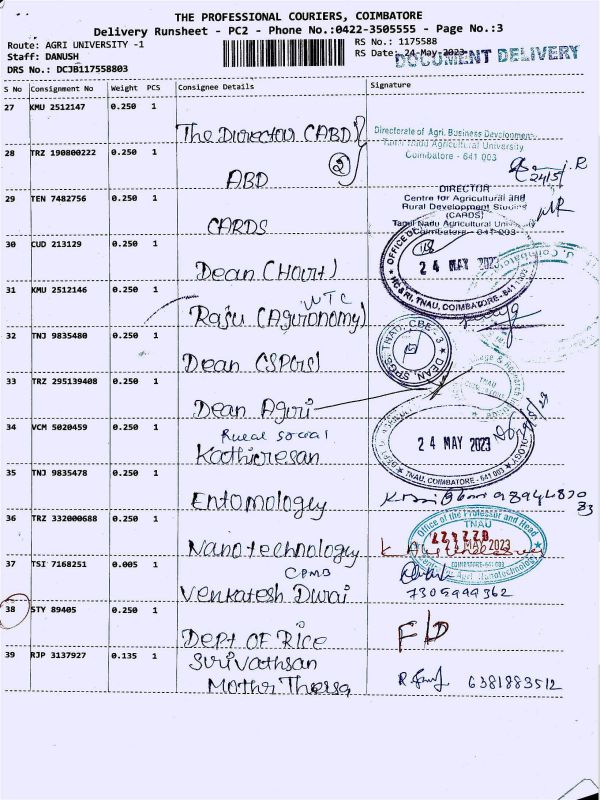 THE PROFESSIONAL COURIERS, COIMBATORE
Delivery Runsheet - PC2 - Phone No.:0422-3505555 - Page No.:3
Route: AGRI UNIVERSITY -1
RS No.: 1175588
Staff: DANUSH
RS Date: 24-May-2023
DOCUMENT DELIVERY
DRS No.: DCJB117558803
S No Consignment No Weight PCS Consignee Details Signature
27 KMU 2512147 0.250 1
The Director (ABD)
Directorate of Agri. Business Development
Tamil Nadu Agricultural University
Coimbatore - 641 003
28 TRZ 190800222 0.250 1
ABD
2
24/5
29 TEN 7482756 0.250 1
CARDS
DIRECTOR
Centre for Agricultural and
Rural Development Studies
(CARDS)
Tamil Nadu Agricultural University
Coimbatore - 641 003
30 CUD 213129 0.250 1
Dean (Hort)
OFFICE OF
24 MAY 2023
HC & RI, TNAU, COIMBATORE - 641
31 KMU 2512146 0.250 1
WTC
Raju (Agronomy)
32 TNJ 9835480 0.250 1
Dean (SPGS)
DEAN, SPGS, TNAU, CBE - 3
33 TRZ 295139408 0.250 1
Dean Agri
TNAU
34 VCM 5020459 0.250 1
Rural social
Kathiresan
24 MAY 2023
TNAU, COIMBATORE - 641 003
35 TNJ 9835478 0.250 1
Entomology
36 TRZ 332000688 0.250 1
Nanotechnology
Office of the Professor and Head
TNAU
MAY 2023
COIMBATORE-641 003
Agri. Nanotechnology
37 TSI 7168251 0.005 1
CPMB
Venkatesh Durai
7305999362
38 STY 89405 0.250 1
DEPT OF RICE
F/D
39 RJP 3137927 0.135 1
Srivathsan
Mothr Thersa
6381883512